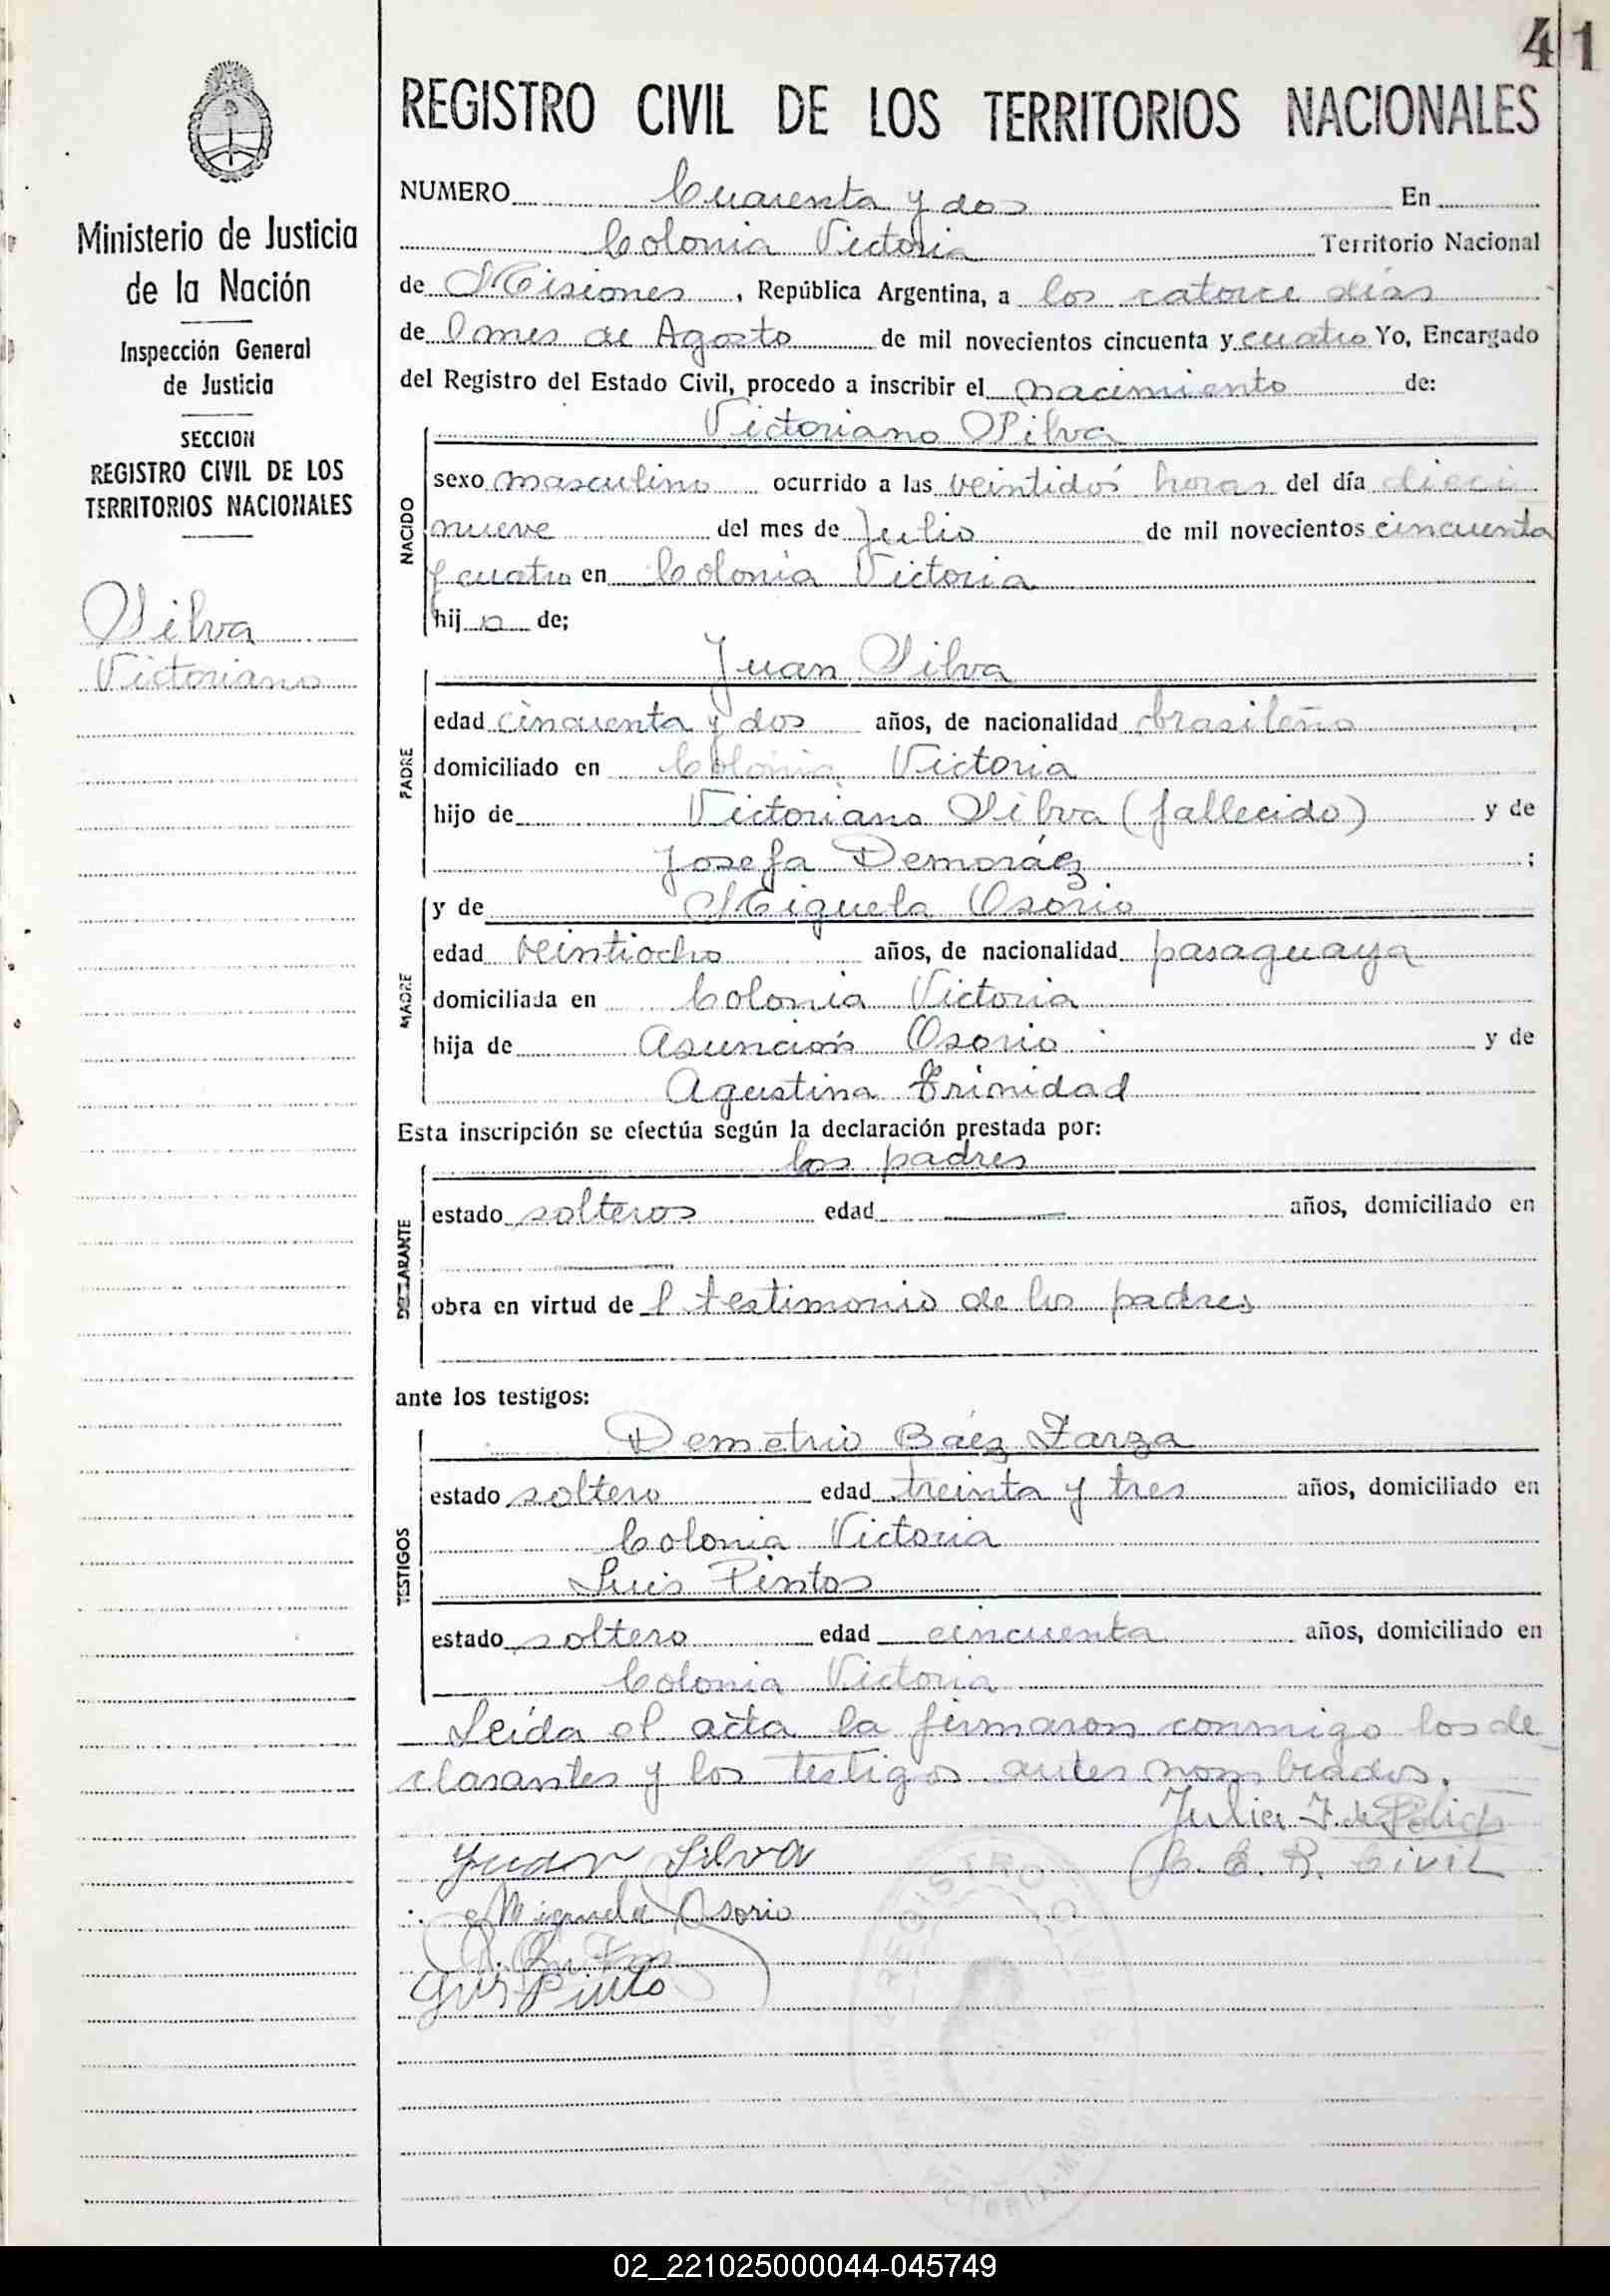 41
REGISTRO CIVIL DE LOS TERRITORIOS NACIONALES
Ministerio de Justicia
de la Nación
Inspección General
de Justicia
SECCION
REGISTRO CIVIL DE LOS
TERRITORIOS NACIONALES
Silva
Victoriano
NUMERO Cuarenta y dos En
Colonia Victoria Territorio Nacional
de Misiones, República Argentina, a los catorce días
de l mes de Agosto de mil novecientos cincuenta y cuatro Yo, Encargado
del Registro del Estado Civil, procedo a inscribir el nacimiento de:
Victoriano Silva
NACIDO
sexo masculino ocurrido a las veintidós horas del día dieci
nueve del mes de Julio de mil novecientos cincuenta
y cuatro en Colonia Victoria
hij o de;
Juan Silva
PADRE
edad cincuenta y dos años, de nacionalidad brasileño
domiciliado en Colonia Victoria
hijo de Victoriano Silva (fallecido) y de
Josefa Demoráez;
MADRE
y de Miguela Osorio
edad veintiocho años, de nacionalidad pasaguaya
domiciliada en Colonia Victoria
hija de Asunción Osorio y de
Agustina Trinidad
Esta inscripción se efectúa según la declaración prestada por:
los padres
DECLARANTE
estado solteros edad años, domiciliado en
obra en virtud de l testimonio de los padres
ante los testigos:
TESTIGOS
Demetrio Báez Zarza
estado soltero edad treinta y tres años, domiciliado en
Colonia Victoria
Luis Pintos
estado soltero edad cincuenta años, domiciliado en
Colonia Victoria
Leída el acta la firmaron conmigo los de
clarantes y los testigos antes nombrados.
Julia F. de
E. R. Civil
Juan Silva
Miguela Osorio
Pinto
REGISTRO CIVIL
02_221025000044-045749